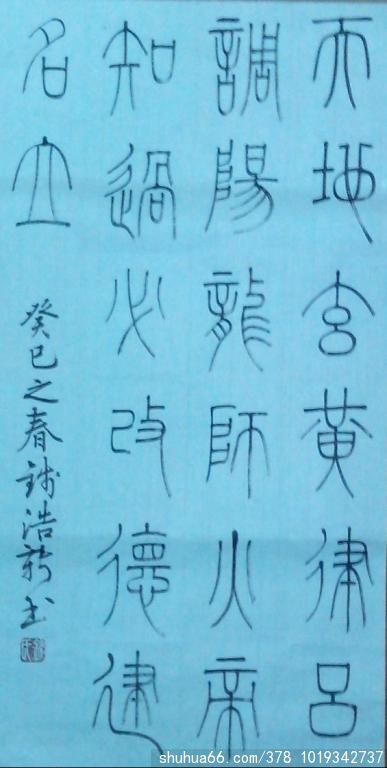 天地玄黄律吕
調陽龍師火帝
知過必改德建
名立
癸巳之春浩书
shuhua66.com/378 1019342737